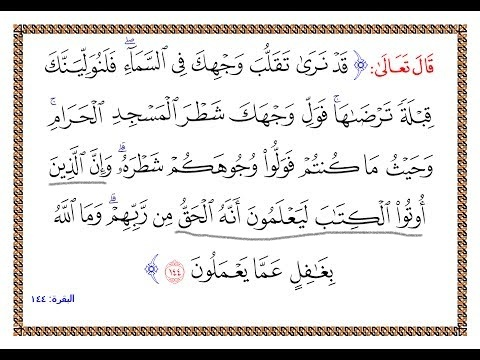 قَالَ تَعَالَىٰ: ﴿ قَدْ نَرَىٰ تَقَلُّبَ وَجْهِكَ فِي ٱلسَّمَآءِۖ فَلَنُوَلِّيَنَّكَ
قِبْلَةً تَرْضَىٰهَاۚ فَوَلِّ وَجْهَكَ شَطْرَ ٱلْمَسْجِدِ ٱلْحَرَامِۚ
وَحَيْثُ مَا كُنتُمْ فَوَلُّوا۟ وُجُوهَكُمْ شَطْرَهُۥۗ وَإِنَّ ٱلَّذِينَ
أُوتُوا۟ ٱلْكِتَٰبَ لَيَعْلَمُونَ أَنَّهُ ٱلْحَقُّ مِن رَّبِّهِمْۗ وَمَا ٱللَّهُ
بِغَٰفِلٍ عَمَّا يَعْمَلُونَ ١٤٤ ﴾
البقرة: ١٤٤